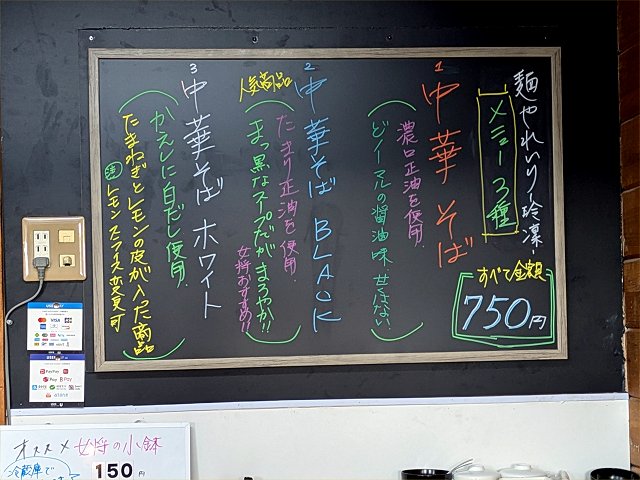 麺や れいりー玲凜
メニュー 3種
すべて金額
750円
1
中華そば
濃口正油を使用.
(どノーマルの醤油味 甘くはない)
2
中華そば BLACK
人気商品
たまり正油を使用.
(まっ黒なスープだが まろやか!!
女将おすすめ!!)
3
中華そば ホワイト
(かえしに白だし使用.
たまねぎとレモンの皮が入った商品)
注 レモン スライス変更可
VISA
PayPay
R Pay
オススメ 女将の小鉢
冷蔵庫で
150円